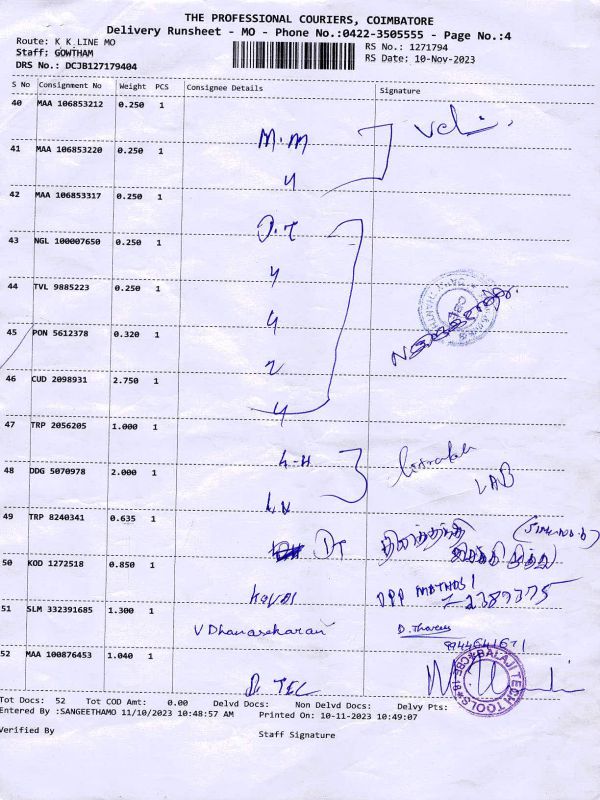 THE PROFESSIONAL COURIERS, COIMBATORE
Delivery Runsheet - MO - Phone No.:0422-3505555 - Page No.:4
Route: K K LINE MO
Staff: GOWTHAM
DRS No.: DCJB127179404
RS No.: 1271794
RS Date: 10-Nov-2023
S No Consignment No Weight PCS Consignee Details Signature
40 MAA 106853212 0.250 1
M.M
41 MAA 106853220 0.250 1
42 MAA 106853317 0.250 1
43 NGL 100007650 0.250 1
44 TVL 9885223 0.250 1
45 PON 5612378 0.320 1
46 CUD 2098931 2.750 1
47 TRP 2056205 1.000 1
L-H
48 DDG 5070978 2.000 1
LAB
49 TRP 8240341 0.635 1
DT தினத்தந்தி
50 KOD 1272518 0.850 1
KOVAI
51 SLM 332391685 1.300 1
V Dhanasekaran
9944641671
52 MAA 100876453 1.040 1
B. TEC
BALAJI TECH TOOLS
Tot Docs: 52 Tot COD Amt: 0.00 Delvd Docs: Non Delvd Docs: Delvy Pts:
Entered By :SANGEETHAMO 11/10/2023 10:48:57 AM Printed On: 10-11-2023 10:49:07
Verified By Staff Signature